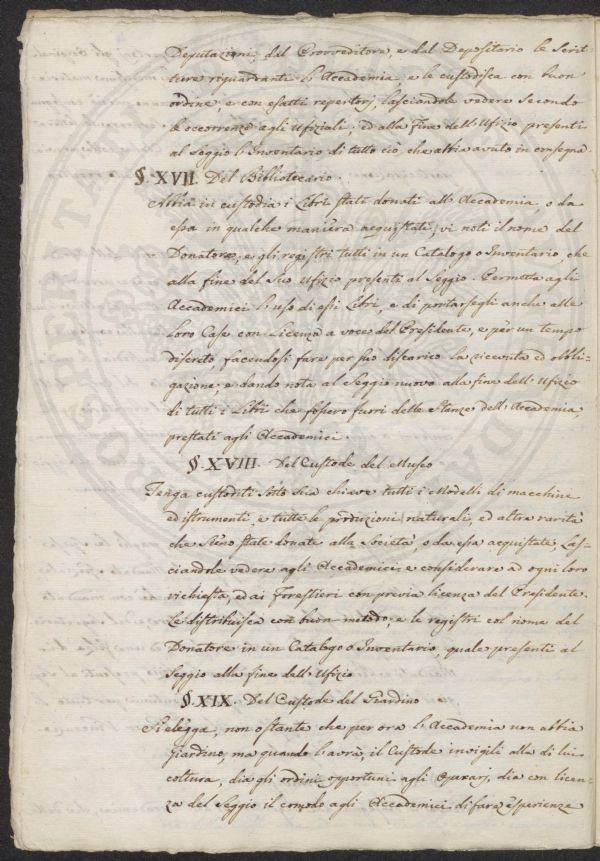 Deputazioni, dal Provveditore, e dal Depositario le Scrit-
ture riguardanti l'Accademia, e le custodisca con buon
ordine, e con esatti repertorj, lasciandole vedere secondo
le occorrenze agli Ufiziali, ed alla fine dell'Ufizio presenti
al Seggio l'Inventario di tutto ciò, che abbia avuto in consegna.
§. XVII. Del Bibliotecario.
Abbia in custodia i Libri stati donati all'Accademia, o da
essa in qualche maniera acquistati, vi noti il nome del
Donatore, e gli registri tutti in un Catalogo o Inventario, che
alla fine del suo Ufizio presenti al Seggio. Permetta agli
Accademici l'uso di essi Libri, e di portarsegli anche alle
loro Case con Licenza a voce del Presidente, e per un tempo
discreto, facendosi fare per suo discarico la ricevuta ed obbli-
gazione, e dando nota al Seggio nuovo alla fine dell'Ufizio
di tutti i Libri che fossero fuori delle Stanze dell'Accademia,
prestati agli Accademici.
§. XVIII. Del Custode del Museo
Tenga custoditi sotto sua chiave tutti i Modelli di macchine
ed istrumenti, e tutte le produzioni naturali, ed altre rarità
che sieno state donate alla Società, o da essa acquistate, las-
ciandole vedere agli Accademici, e considerare a ogni loro
richiesta, ed ai Forestieri con previa licenza del Presidente.
Le distribuisca con buon metodo, e le registri col nome del
Donatore in un Catalogo o Inventario, quale presenti al
Seggio alla fine dell'Ufizio
§. XIX. Del Custode del Giardino
Si elegga, non ostante che per ora l'Accademia non abbia
giardino, ma quando l'avrà, il Custode invigili alla di lui
coltura, dia gli ordini opportuni agli Operarj, dia con licen-
za del Seggio il comodo agli Accademici di fare esperienze